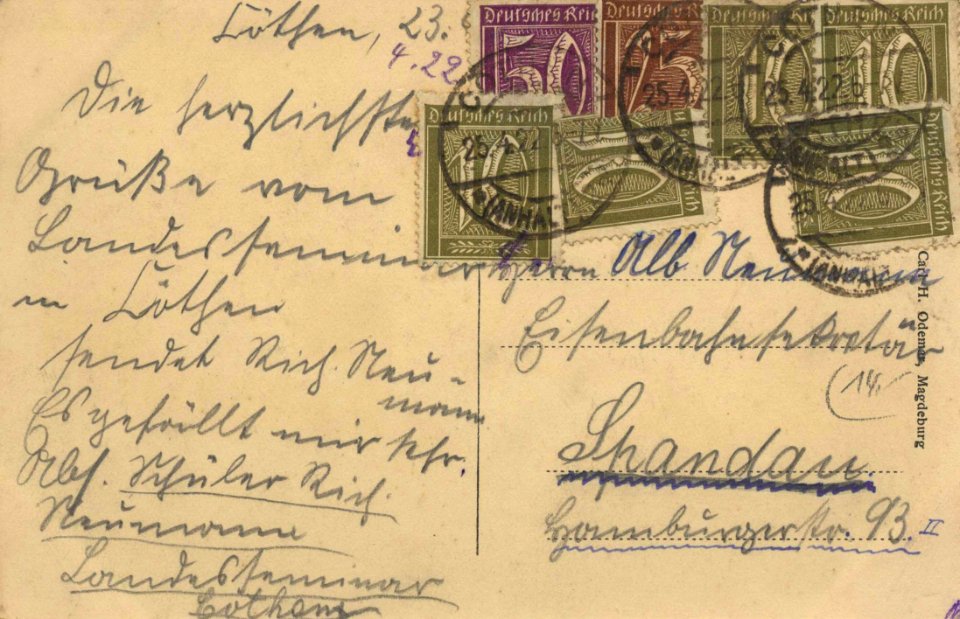 Cöthen, 23.
4.22
Die herzlichsten
Grüße vom
Landesseminar
in Cöthen
sendet Rich. Neu-
mann
Es gefällt mir sehr.
Abs. Schüler Rich.
Neumann
Landesseminar
Cöthen
Deutsches Reich
Deutsches Reich
Deutsches Reich
Deutsches Reich
Deutsches Reich
Deutsches Reich
25.4.22
(ANHALT)
25.4.22
(ANHALT)
25.4.22
(ANHALT)
25.
(ANHALT)
Herrn Alb Neumann
Eisenbahnsekretär
(14).
Spandau.
Hamburgerstr. 93 II
Carl H. Odemar, Magdeburg